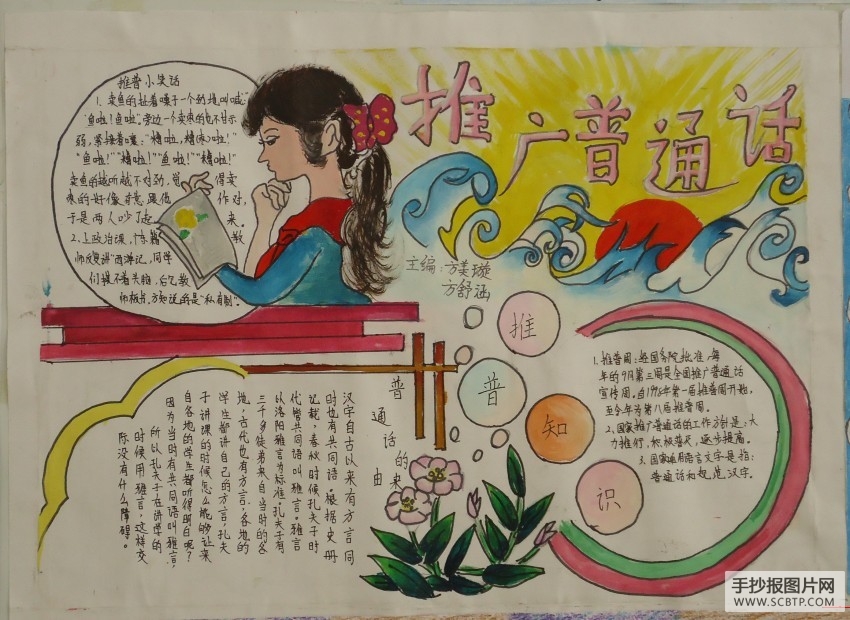 推广普通话
主编：方美璇
方舒涵
推普小笑话
1、卖鱼的扯着嗓子一个劲地叫喊：
"鱼啦！鱼啦"。旁边一个卖枣的也不甘示
弱，紧接着嚷："糟啦，糟(枣)啦！"
"鱼啦！""糟啦！""鱼啦！""糟啦！"
卖鱼的越听越不对劲，觉得卖
枣的好像有意跟他作对，
于是两人吵了起来。
2、上政治课，陈籍教
师反复讲"西游记，同学
们摸不着头脑，后乞教
师板书，方知说的是"私有制"。
推普知识
1、推普周：经国务院批准，每
年的9月第三周是全国推广普通话
宣传周。自1998年第一届推普周开始，
至今年为第八届推普周。
2、国家推广普通话的工作方针是：大
力推行，积极普及，逐步提高。
3、国家通用语言文字是指：
普通话和规范汉字。
普通话的来由
汉字自古以来有方言同
时也有共同语。根据史册
记载，春秋时候孔夫子时
代管共同语叫雅言。雅言
以洛阳雅言为标准。孔夫子有
三千多徒弟来自当时的各
地，古代也有方言，各地的
学生都讲自己的方言，孔夫
子讲课的时候怎么能够让来
自各地的学生都听得明白呢？
因为当时有共同语叫雅言，
所以孔夫子在讲学的
时候用雅言，这样交
际没有什么障碍。
手抄报图片网
WWW.SCBTP.COM